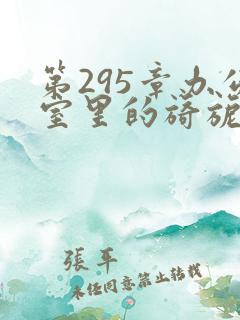 第295章办公
室里的旖旎
張平
未经同意禁止转载